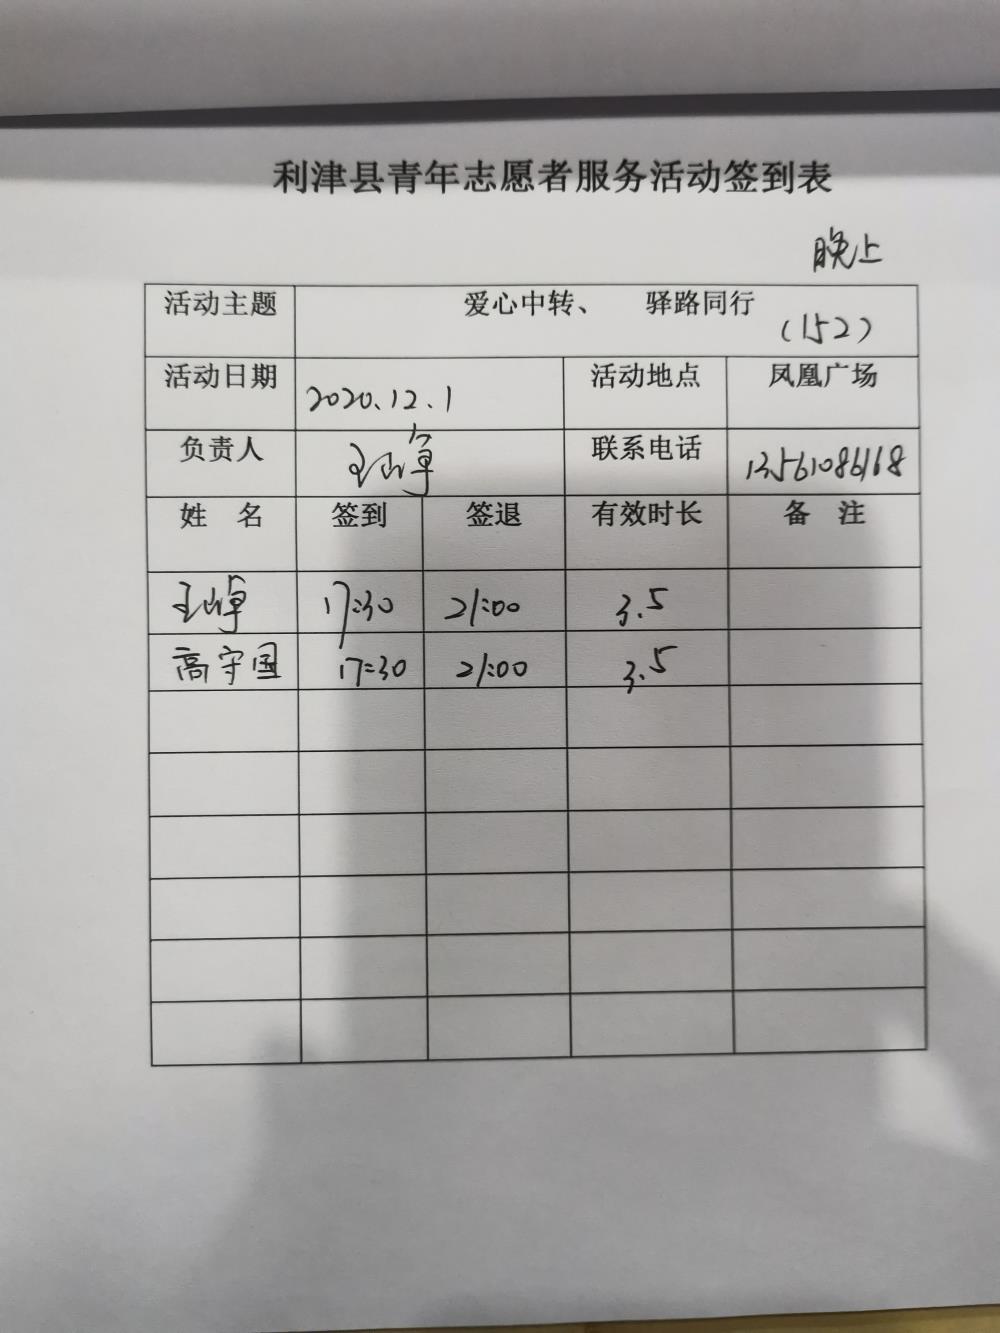 利津县青年志愿者服务活动签到表
晚上
活动主题 爱心中转、 驿路同行 (152)
活动日期 2020.12.1 活动地点 凤凰广场
负责人 王山卓 联系电话 13561086168
姓 名 签到 签退 有效时长 备 注
王山卓 17:30 21:00 3.5
高守国 17:30 21:00 3.5